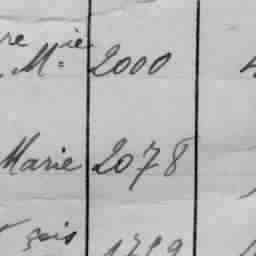 re Mie 2000
Marie 2078
çois